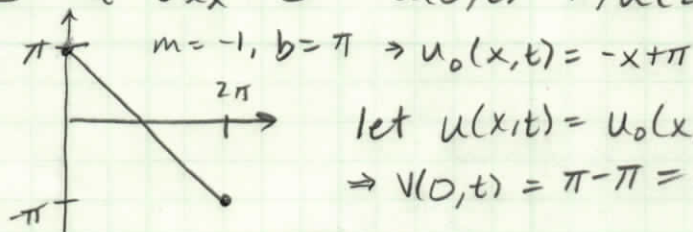 π
m = -1, b = π ⇒ u₀(x,t) = -x+π
2π
let u(x,t) = u₀(x
⇒ V(0,t) = π-π =
-π